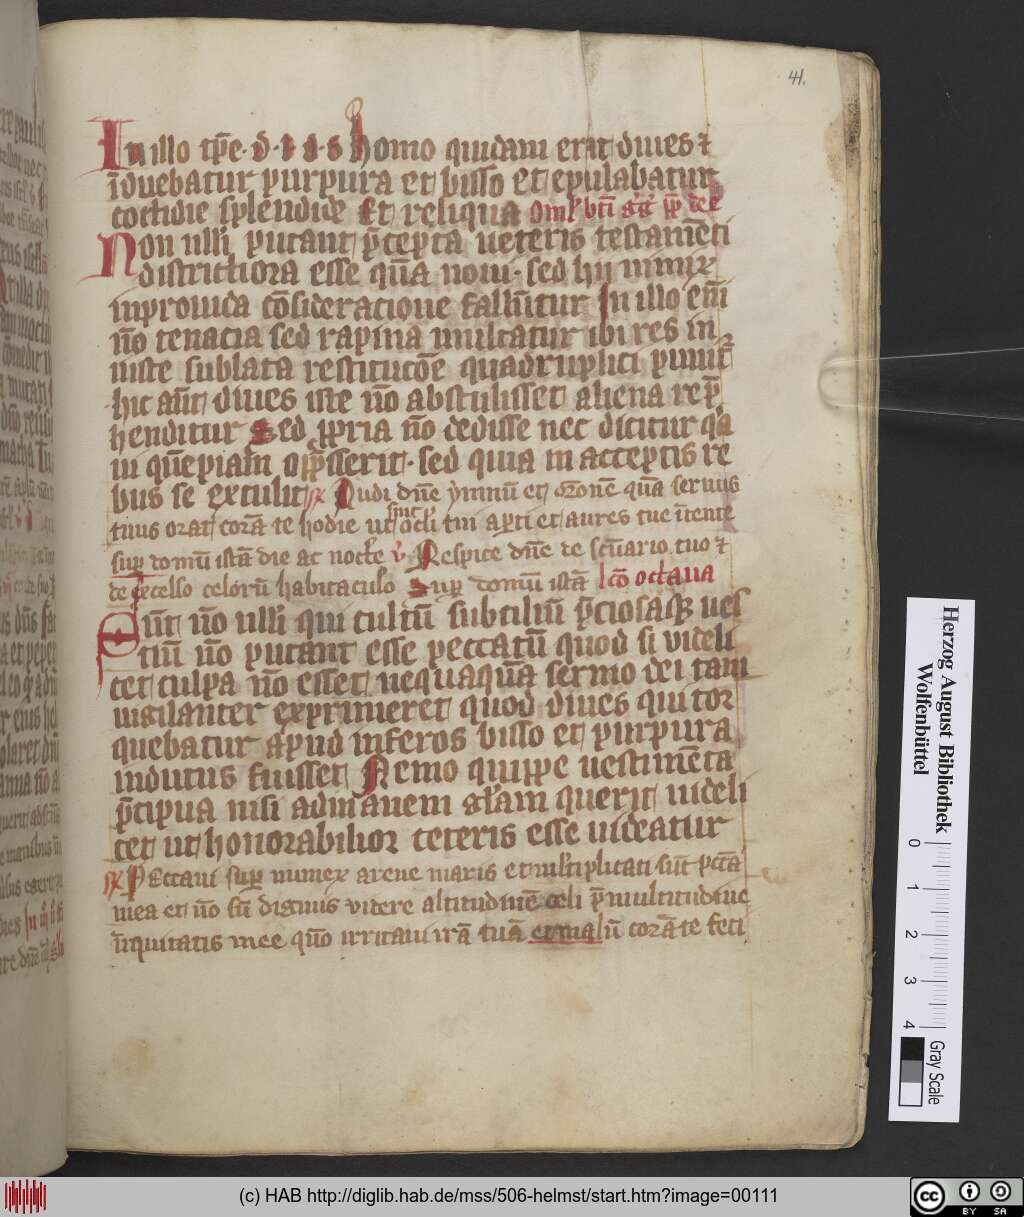 41.
In illo tp̄e · d · i · d · s homo quidam erat diues ⁊
īduebatur purpura et bisso et epulabatur
cottidie splendide Et reliqua Omł bti gḡ pp̄
Non nulli putant p̄cepta ueteris testamēti
districtiora esse quā noui · sed hij nimiꝝ
inprouida cōsideracione fallūtur In illo em̄
nō tenacia sed rapina multatur ibi res in
iuste sublata restitucōe quadruplici punit᷑
hic aūt diues iste nō abstulisset aliena rep̄
henditur Sed ꝓpria nō dedisse nec dicitur qa
ui quēpiam opp̄sserit · sed quia in acceptis re
bus se extulit ꝶ Audi dn̄e ymnū et oronē quā seruus
tuus orat corā te hodie ut sint ocli tui apti et aures tue intente
suꝑ domū istā die ac nocte ꝟ Respice dn̄e de sc̄uario tuo ⁊
de excelso celorū habitaculo Suꝑ domū istā lcō octaua
Sūt nō nulli qui cultū subtiliū p̄ciosaꝜ ues
tiū nō putant esse peccatū quod si videli
cet culpa nō esset nequaquā sermo dei tam
uigilanter exprimeret quod diues qui tor
quebatur apud inferos bisso et purpura
indutus fuisset Nemo quippe uestimēta
p̄cipua nisi ad inanem głam querit uideli
cet ut honorabilior ceteris esse uideatur
ꝶ Peccaui suꝑ numeꝝ arene maris et multiplicati sūt pctā
mea et nō sū dignus videre altitudinē celi p̄ multitudine
iniquitatis mee qm̄ irritaui irā tuā et malū corā te feci
Herzog August Bibliothek
Wolfenbüttel
0 1 2 3 4
Gray Scale
(c) HAB http://diglib.hab.de/mss/506-helmst/start.htm?image=00111
cc BY SA